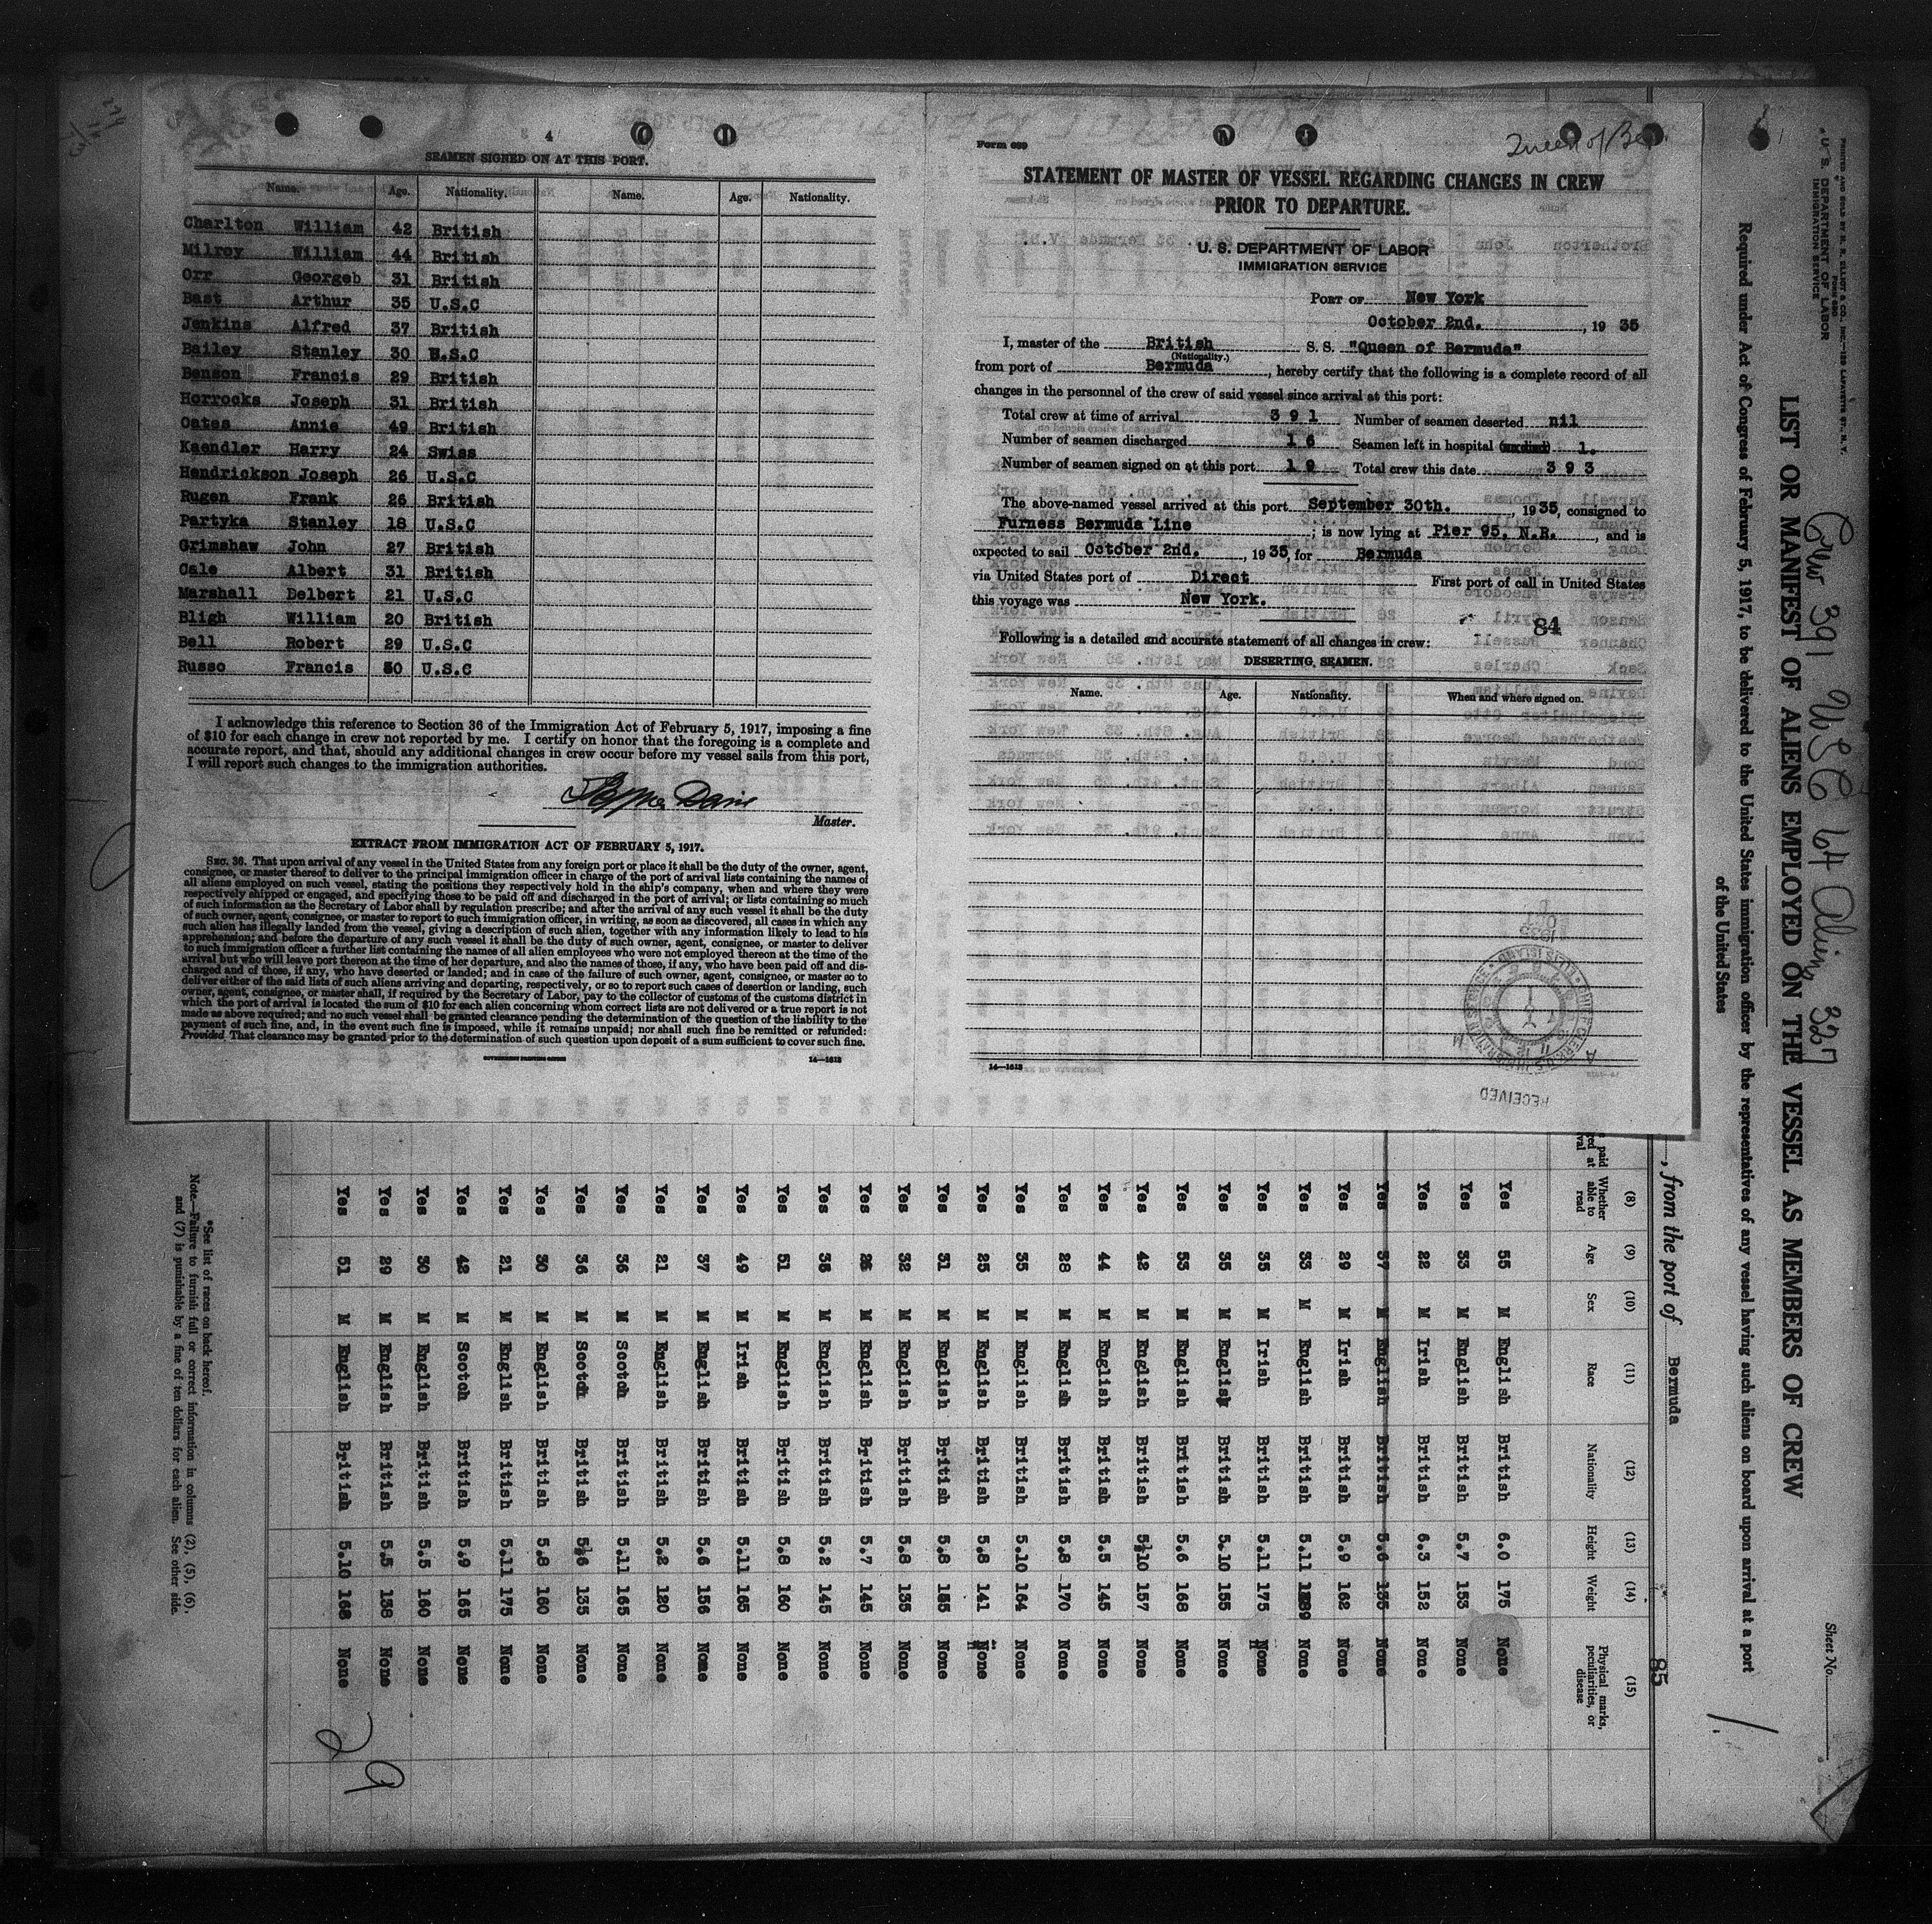 4
SEAMEN SIGNED ON AT THIS PORT.
Name. Age. Nationality. Name. Age. Nationality.
Charlton William 42 British
Milroy William 44 British
Orr Georgeb 31 British
Bast Arthur 35 U.S.C
Jenkins Alfred 37 British
Bailey Stanley 30 U.S.C
Benson Francis 29 British
Horrocks Joseph 31 British
Oates Annie 49 British
Kaendler Harry 24 Swiss
Hendrickson Joseph 26 U.S.C
Rugen Frank 26 British
Partyka Stanley 18 U.S.C
Grimshaw John 27 British
Cale Albert 31 British
Marshall Delbert 21 U.S.C
Bligh William 20 British
Bell Robert 29 U.S.C
Russo Francis 30 U.S.C
I acknowledge this reference to Section 36 of the Immigration Act of February 5, 1917, imposing a fine
of $10 for each change in crew not reported by me. I certify on honor that the foregoing is a complete and
accurate report, and that, should any additional changes in crew occur before my vessel sails from this port,
I will report such changes to the immigration authorities.
Master.
EXTRACT FROM IMMIGRATION ACT OF FEBRUARY 5, 1917.
SEC. 36. That upon arrival of any vessel in the United States from any foreign port or place it shall be the duty of the owner, agent,
consignee, or master thereof to deliver to the principal immigration officer in charge of the port of arrival lists containing the names of
all aliens employed on such vessel, stating the positions they respectively hold in the ship's company, when and where they were
respectively shipped or engaged, and specifying those to be paid off and discharged in the port of arrival; or lists containing so much
of such information as the Secretary of Labor shall by regulation prescribe; and after the arrival of any such vessel it shall be the duty
of such owner, agent, consignee, or master to report to such immigration officer, in writing, as soon as discovered, all cases in which any
such alien has illegally landed from the vessel, giving a description of such alien, together with any information likely to lead to his
apprehension; and before the departure of any such vessel it shall be the duty of such owner, agent, consignee, or master to deliver
to such immigration officer a further list containing the names of all alien employees who were not employed thereon at the time of the
arrival but who will leave port thereon at the time of her departure, and also the names of those, if any, who have been paid off and dis-
charged and of those, if any, who have deserted or landed; and in case of the failure of such owner, agent, consignee, or master so to
deliver either of the said lists of such aliens arriving and departing, respectively, or so to report such cases of desertion or landing, such
owner, agent, consignee, or master shall, if required by the Secretary of Labor, pay to the collector of customs of the customs district in
which the port of arrival is located the sum of $10 for each alien concerning whom correct lists are not delivered or a true report is not
made as above required; and no such vessel shall be granted clearance pending the determination of the question of the liability to the
payment of such fine, and, in the event such fine is imposed, while it remains unpaid; nor shall such fine be remitted or refunded:
Provided, That clearance may be granted prior to the determination of such question upon deposit of a sum sufficient to cover such fine.
GOVERNMENT PRINTING OFFICE 14—1613
Form 689
Queen of Ber
STATEMENT OF MASTER OF VESSEL REGARDING CHANGES IN CREW
PRIOR TO DEPARTURE.
U. S. DEPARTMENT OF LABOR
IMMIGRATION SERVICE
PORT OF New York
October 2nd., 19 35
I, master of the British S. S. "Queen of Bermuda"
(Nationality.)
from port of Bermuda, hereby certify that the following is a complete record of all
changes in the personnel of the crew of said vessel since arrival at this port:
Total crew at time of arrival 391 Number of seamen deserted nil
Number of seamen discharged 16 Seamen left in hospital 1.
Number of seamen signed on at this port 19 Total crew this date 393
The above-named vessel arrived at this port September 30th., 1935, consigned to
Furness Bermuda Line; is now lying at Pier 95, N.R., and is
expected to sail October 2nd., 1935, for Bermuda
via United States port of Direct First port of call in United States
this voyage was New York.
84
Following is a detailed and accurate statement of all changes in crew:
DESERTING SEAMEN.
Name. Age. Nationality. When and where signed on.
14—1613
RECEIVED
U. S. DEPARTMENT OF LABOR
IMMIGRATION SERVICE
Crew 391 USC 64 Aliens 327
LIST OR MANIFEST OF ALIENS EMPLOYED ON THE VESSEL AS MEMBERS OF CREW
Required under Act of Congress of February 5, 1917, to be delivered to the United States immigration officer by the representatives of any vessel having such aliens on board upon arrival at a port
of the United States
Sheet No.
, from the port of Bermuda
85
(8) (9) (10) (11) (12) (13) (14) (15)
Whether able to read Age Sex Race Nationality Height Weight Physical marks, peculiarities, or disease
Yes 55 M English British 6.0 175 None
Yes 33 M English British 5.7 153 None
Yes 22 M Irish British 6.3 152 None
Yes 37 M English British 5.6 135 None
Yes 29 M Irish British 5.9 162 None
Yes 33 M English British 5.11 None
Yes 35 M Irish British 5.11 175 None
Yes 35 M English British 5.10 155 None
Yes 53 M English British 5.6 168 None
Yes 42 M English British 5.10 157 None
Yes 44 M English British 5.5 145 None
Yes 28 M English British 5.8 170 None
Yes 35 M English British 5.10 164 None
Yes 25 M English British 5.8 141 None
Yes 31 M English British 5.8 None
Yes 32 M English British 5.8 135 None
Yes M English British 5.7 145 None
Yes 35 M English British 5.2 145 None
Yes 51 M English British 5.8 160 None
Yes 49 M Irish British 5.11 165 None
Yes 37 M English British 5.6 156 None
Yes 21 M English British 5.2 120 None
Yes 36 M Scotch British 5.11 165 None
Yes 36 M Scotch British 5.6 135 None
Yes 30 M English British 5.8 160 None
Yes 21 M English British 5.11 175 None
Yes 42 M Scotch British 5.9 165 None
Yes 30 M English British 5.5 160 None
Yes 29 M English British 5.5 138 None
Yes 51 M English British 5.10 168 None
29
*See list of races on back hereof.
Note.—Failure to furnish full or correct information in columns (2), (5), (6),
and (7) is punishable by a fine of ten dollars for each alien. See other side.